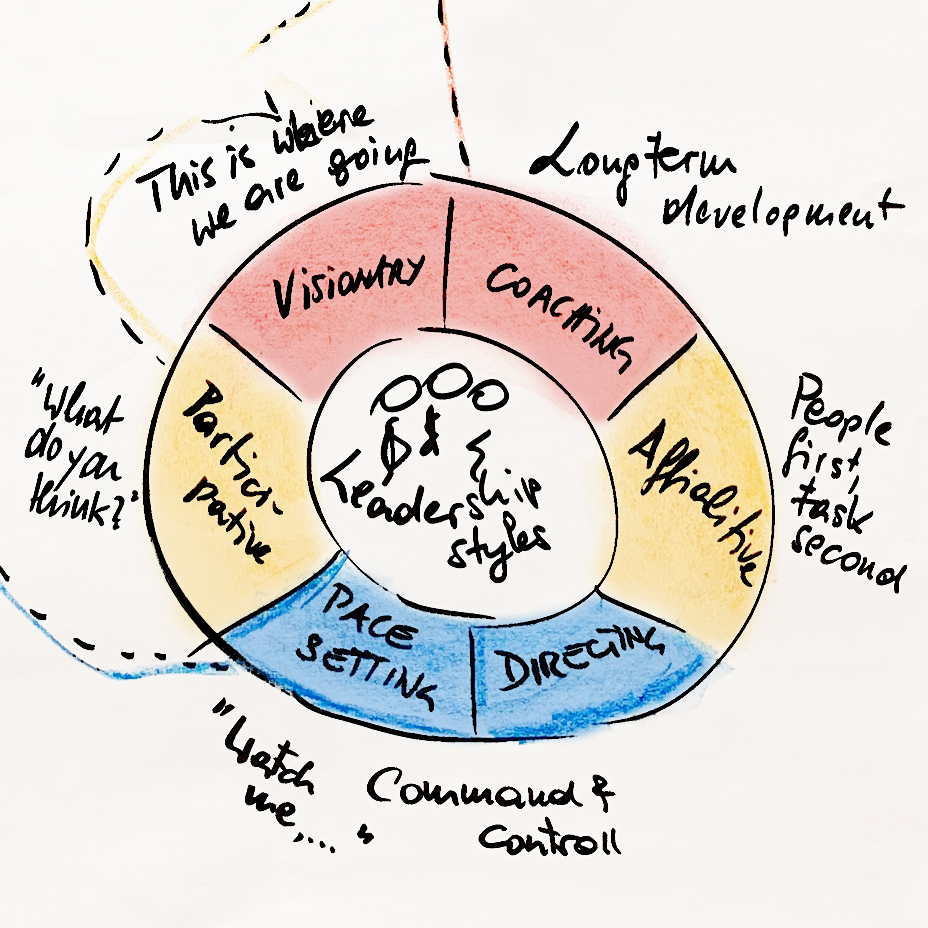 This is where
we are going
Longterm
development
VISIONARY
COACHING
"What
do you
think?"
Partici-
pative
Leadership
styles
Affialitive
People
first,
task
second
PACE
SETTING
DIRECTING
"Watch
me,...."
Command &
Controll